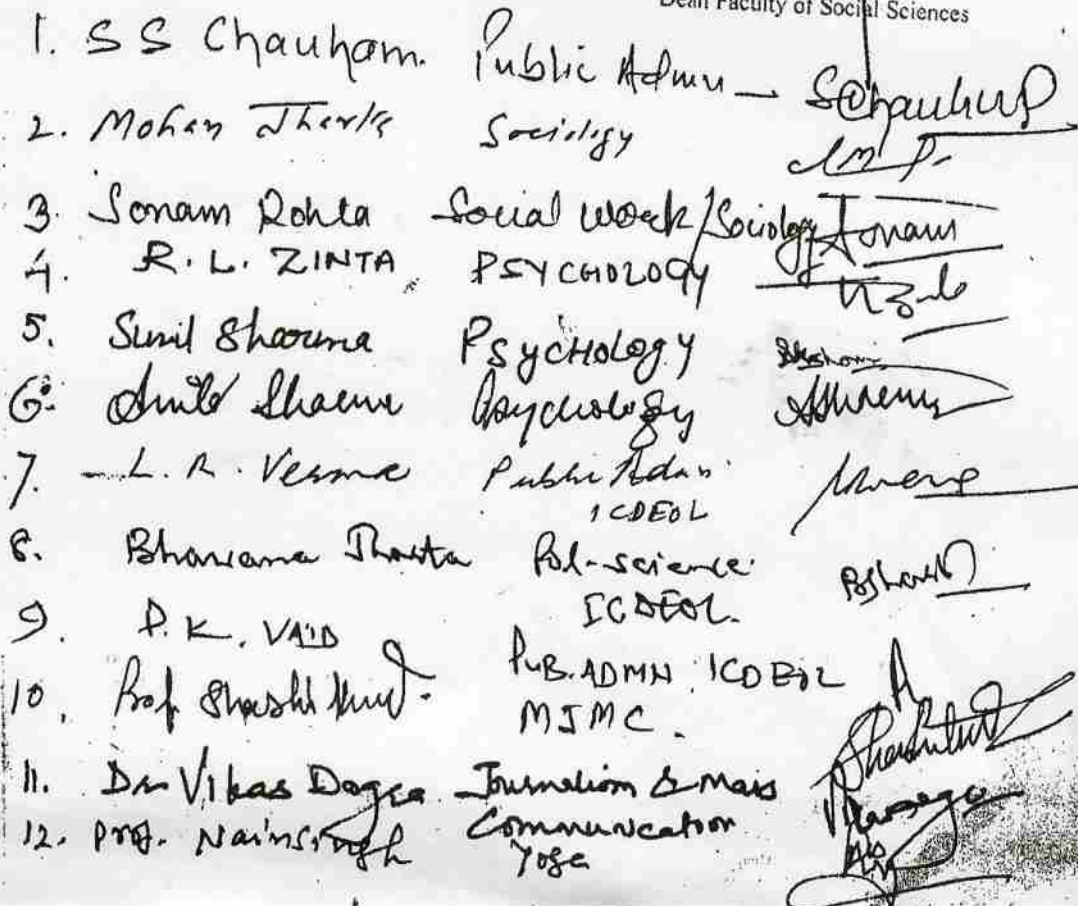 Dean Faculty of Social Sciences
1. S S Chauham. Public Admn - SChauhan
2. Mohan Jharta Sociology
3. Sonam Rohta Social work/Sociology Sonam
4. R. L. ZINTA PSYCHOLOGY
5. Sunil Sharma PsycHology
6. Sharma Psychology
7. L. R. Verma Public Admn
ICDEOL
8. Bhawana Jharta Pol-science
ICDEOL.
9. P. K. VAID PUB. ADMN ICDEOL
10. Prof. Shashi MJMC.
11. Dr Vikas Dogra Journalism & Mass
Communication
12. Prof. Nainsingh Yoga